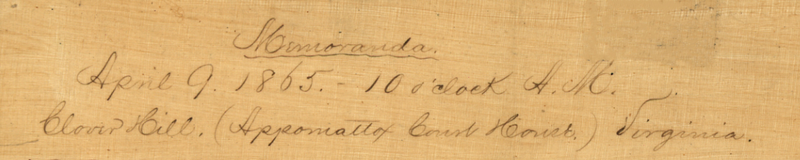 Memoranda.
April 9. 1865. - 10 o'clock A. M.
Clover Hill. (Appomattox Court House.) Virginia.